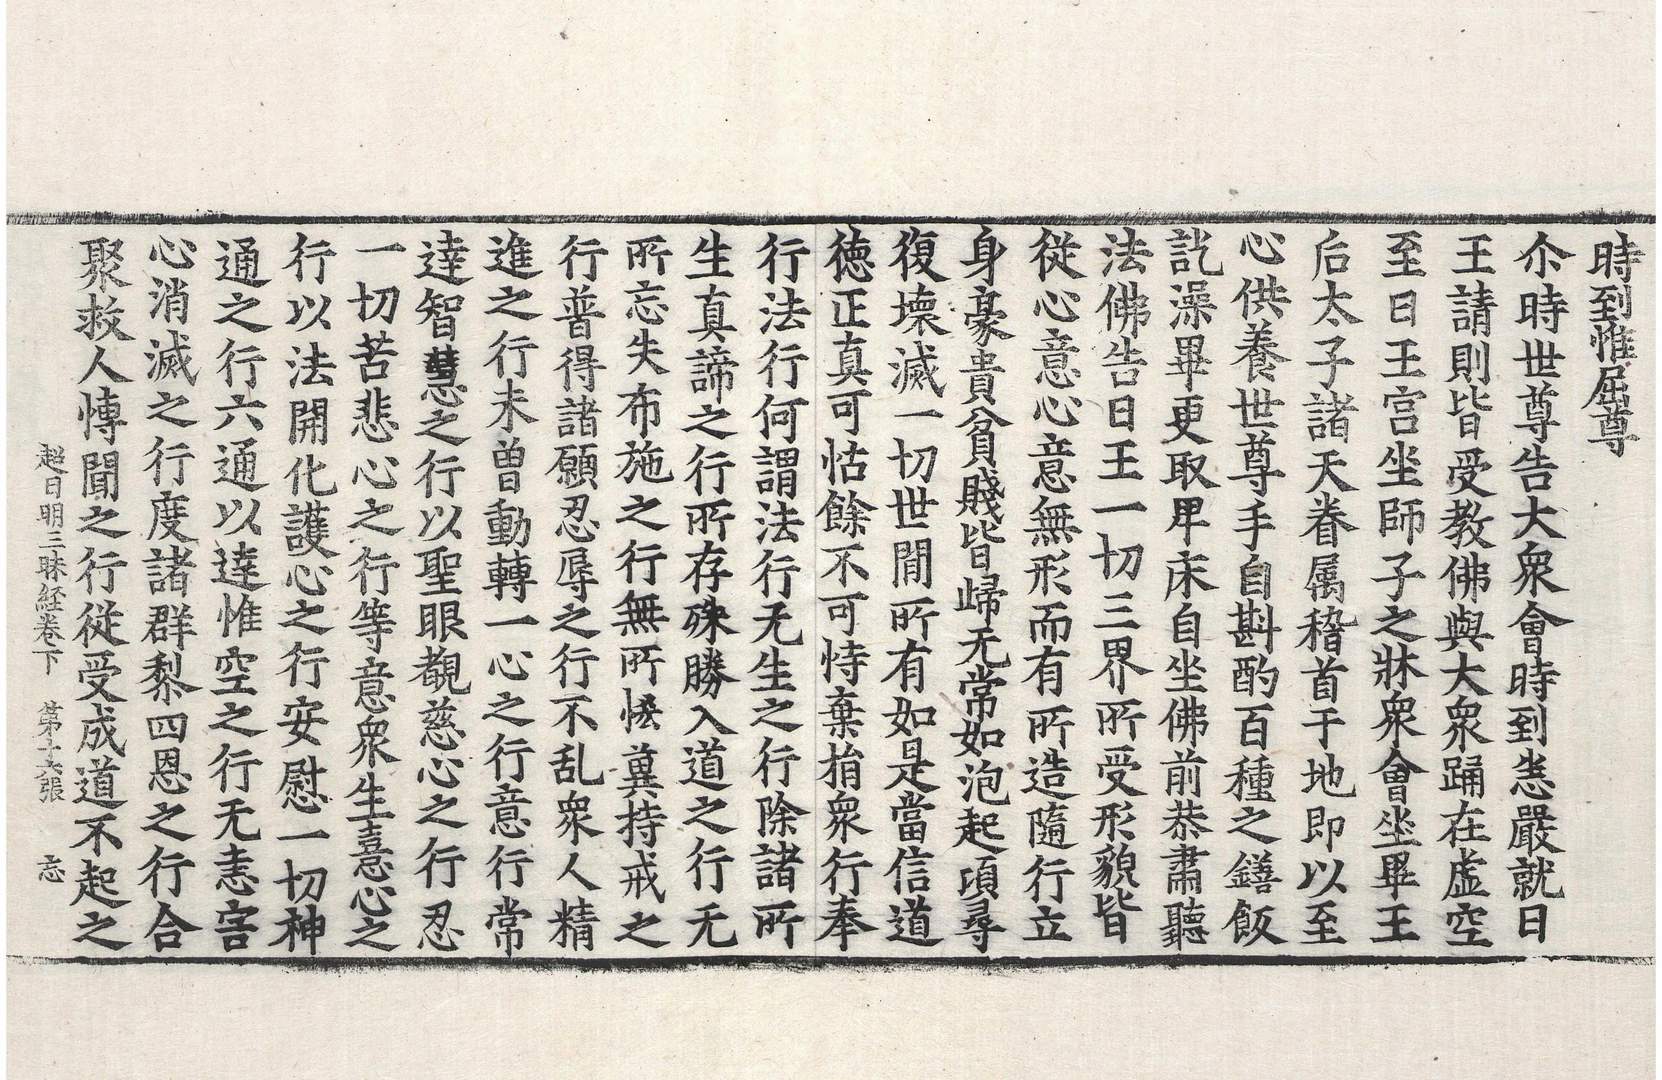 時到惟屈尊
尒時世尊告大衆會時到恙嚴就日
王請則皆受教佛與大衆踊在虛空
至日王宫坐師子之牀衆會坐畢王
后太子諸天眷属稽首于地即以至
心供養世尊手自斟酌百種之饍飯
訖澡畢更取卑床自坐佛前恭肅聽
法佛告日王一切三界所受形貌皆
從心意心意無形而有所造隨行立
身豪貴貧賤皆歸无常如泡起頃尋
復壞滅一切世間所有如是當信道
徳正真可怙餘不可恃棄捐衆行奉
行法行何謂法行无生之行除諸所
生真諦之行所存殊勝入道之行无
所忘失布施之行無所悕兾持戒之
行普得諸願忍辱之行不乱衆人精
進之行未曽動轉一心之行意行常
達智慧之行以聖眼觀慈心之行忍
一切苦悲心之行等意衆生喜心之
行以法開化護心之行安慰一切神
通之行六通以達惟空之行无恚害
心消滅之行度諸群黎四恩之行合
聚救人慱聞之行從受成道不起之
超日明三昧経卷下　第十六張　忘